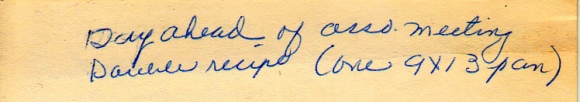 Day ahead of asso. meeting
Double recipe (one 9x13 pan)